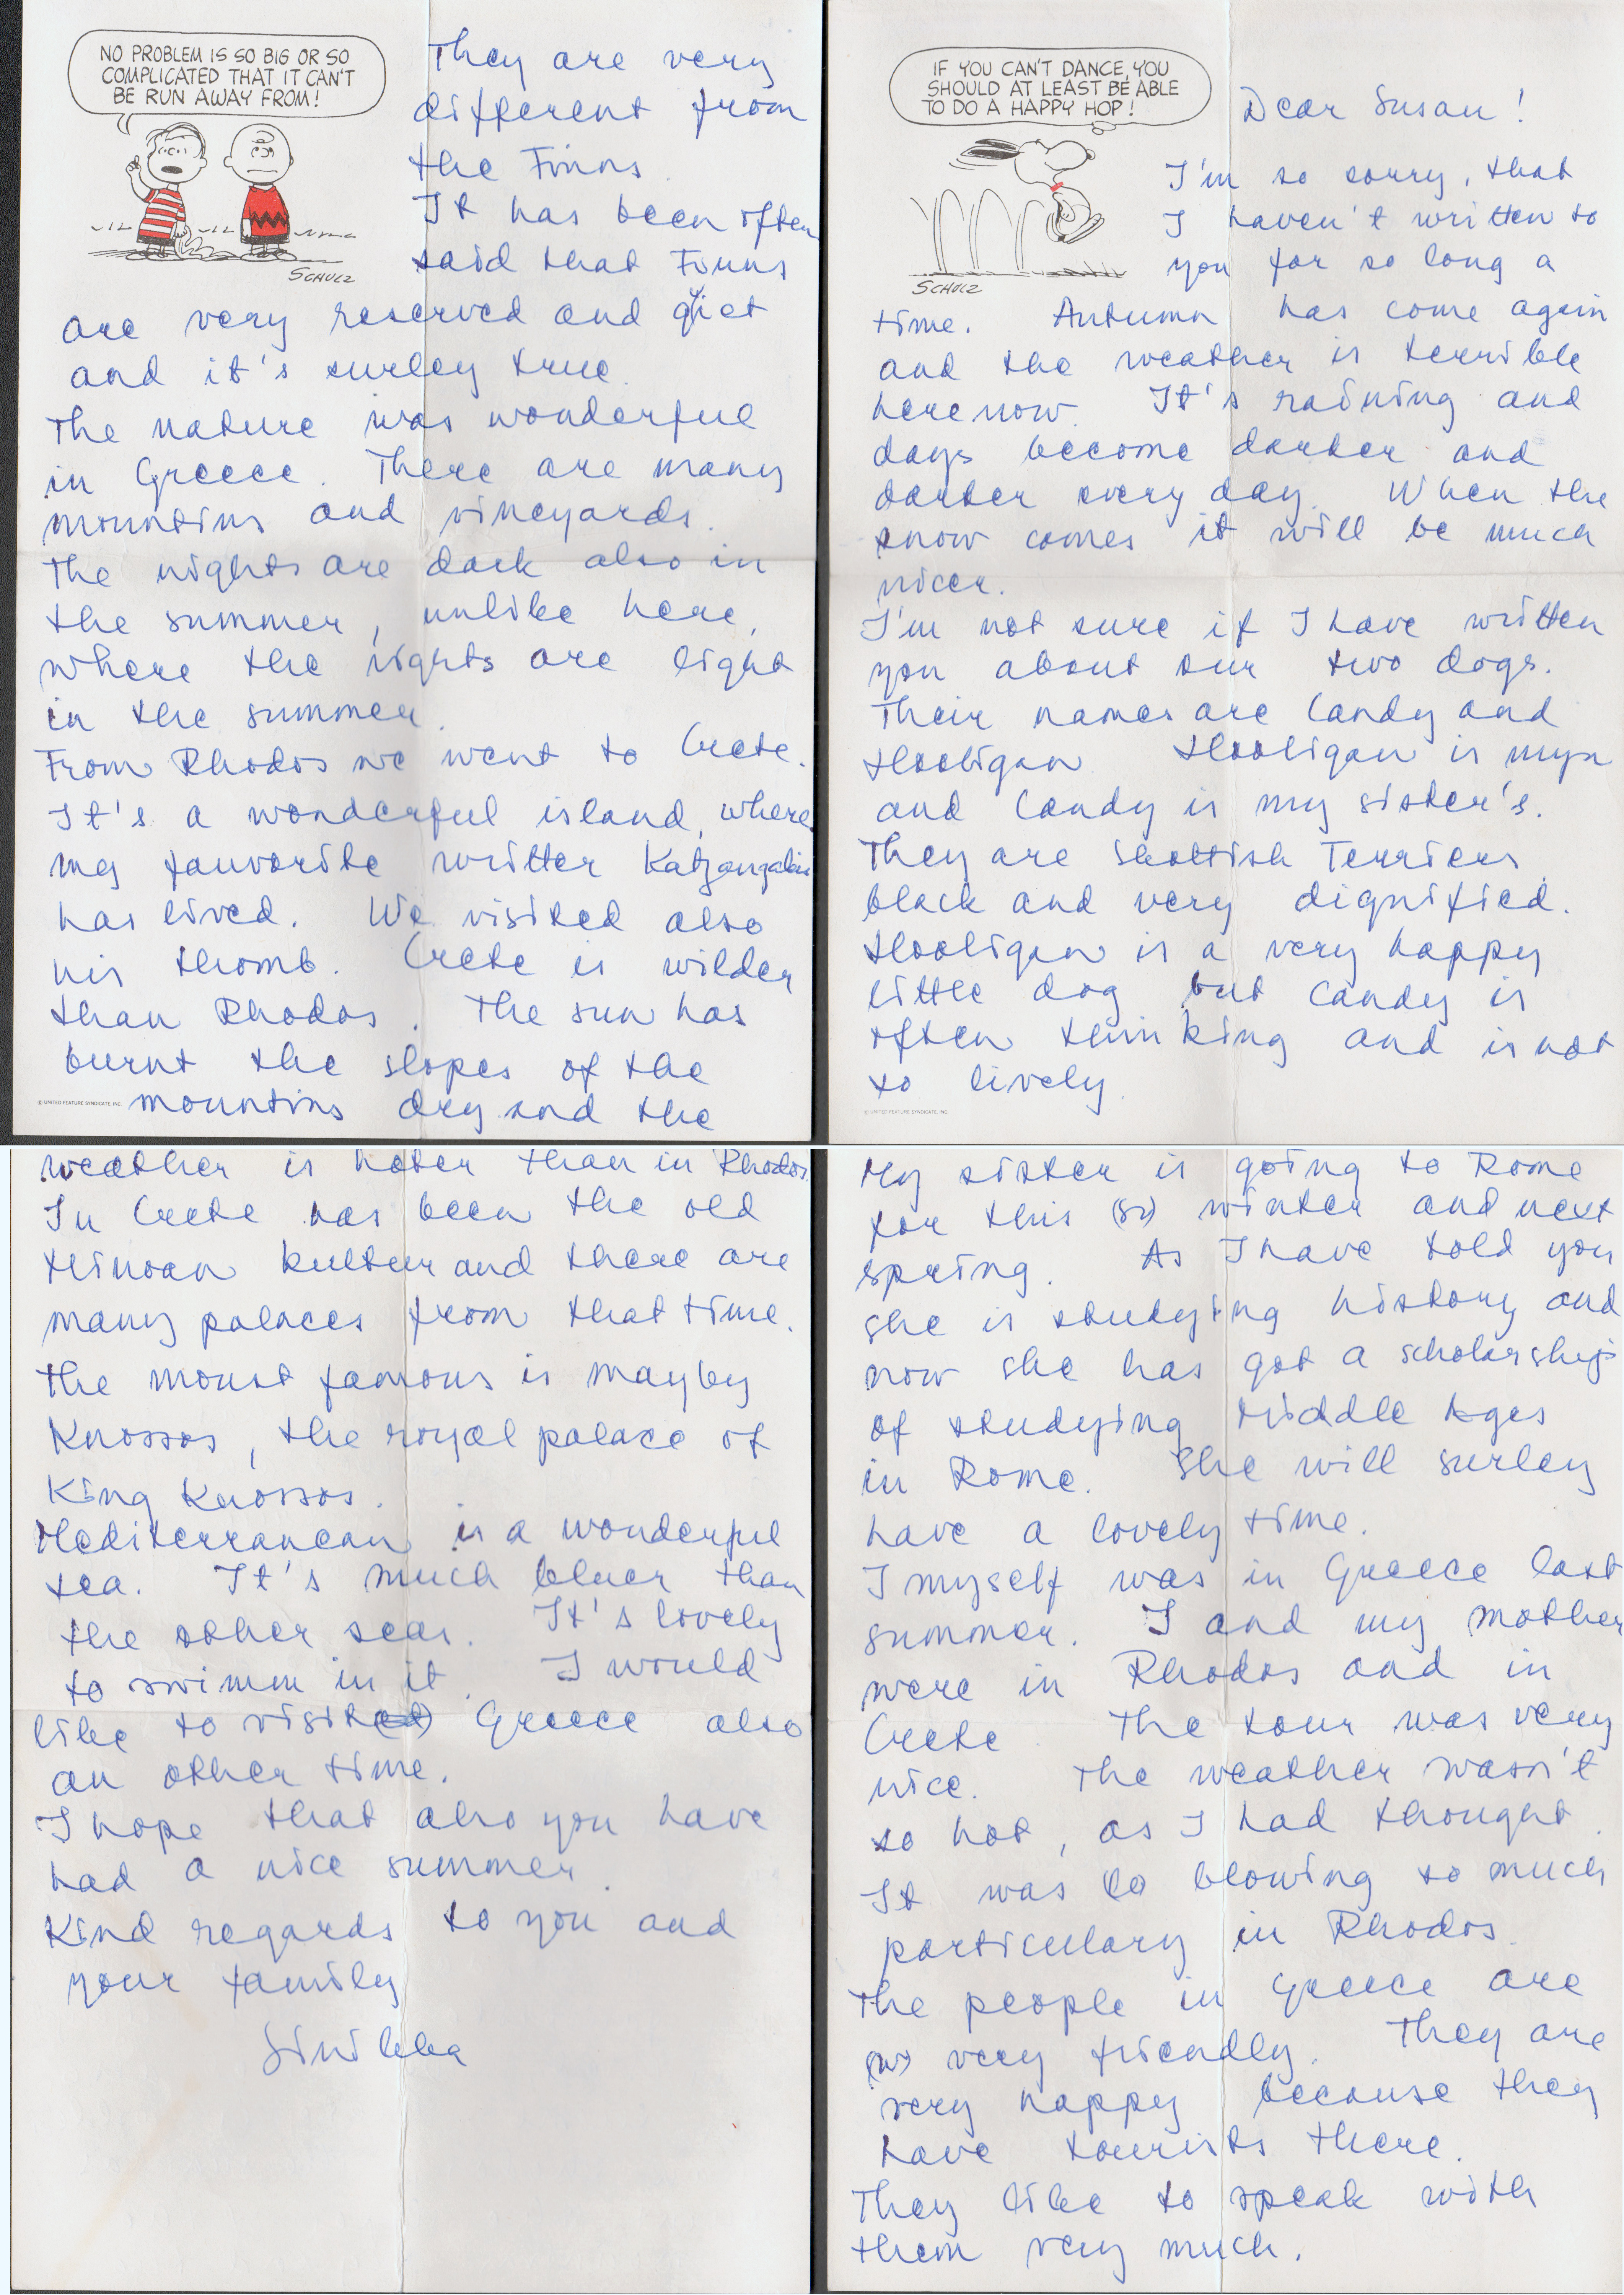 IF YOU CAN'T DANCE, YOU
SHOULD AT LEAST BE ABLE
TO DO A HAPPY HOP!
SCHULZ
Dear Susan!
I'm so sorry, that
I haven't written to
you for so long a
time. Autumn has come again
and the weather is terrible
here now. It's raining and
days become darker and
darker every day. When the
snow comes it will be much
nicer.
I'm not sure if I have written
you about our two dogs.
Their names are Candy and
Hooligan. Hooligan is myn
and Candy is my sister's.
They are Skottish Terriers,
black and very dignified.
Hooligan is a very happy
little dog but Candy is
often thinking and is not
so lively.
© UNITED FEATURE SYNDICATE, INC.
My sister is going to Rome
for this winter and next
spring. As I have told you
she is studying history and
now she has got a scholarship
of studying Middle Ages
in Rome. She will surley
have a lovely time.
I myself was in Greece last
summer. I and my mother
were in Rhodos and in
Crete. The tour was very
nice. The weather wasn't
so hot, as I had thought.
It was blowing so much
particulary in Rhodos.
The people in Greece are
very friendly. They are
very happy because they
have tourists there.
They like to speak with
them very much.
NO PROBLEM IS SO BIG OR SO
COMPLICATED THAT IT CAN'T
BE RUN AWAY FROM!
SCHULZ
They are very
different from
the Finns.
It has been often
said that Finns
are very reserved and qiet
and it's surley true.
The nature was wonderful
in Greece. There are many
mountins and vineyards.
The nights are dark also in
the summer, unlike here,
where the nights are light
in the summer.
From Rhodos we went to Crete.
It's a wonderful island, where
my fauvorite writter
has lived. We visited also
his thomb. Crete is wilder
than Rhodos. The sun has
burnt the slopes of the
mountins dry and the
© UNITED FEATURE SYNDICATE, INC.
weather is hoter than in Rhodos.
In Crete has been the old
Minoan kultur and there are
many palaces from that time.
The moust famous is mayby
Knossos, the royal palace of
King Knossos.
Mediterranean is a wonderful
sea. It's much bluer than
the other seas. It's lovely
to swimm in it. I would
like to visit Greece also
an other time.
I hope that also you have
had a nice summer.
Kind regards to you and
your family
Sinikka